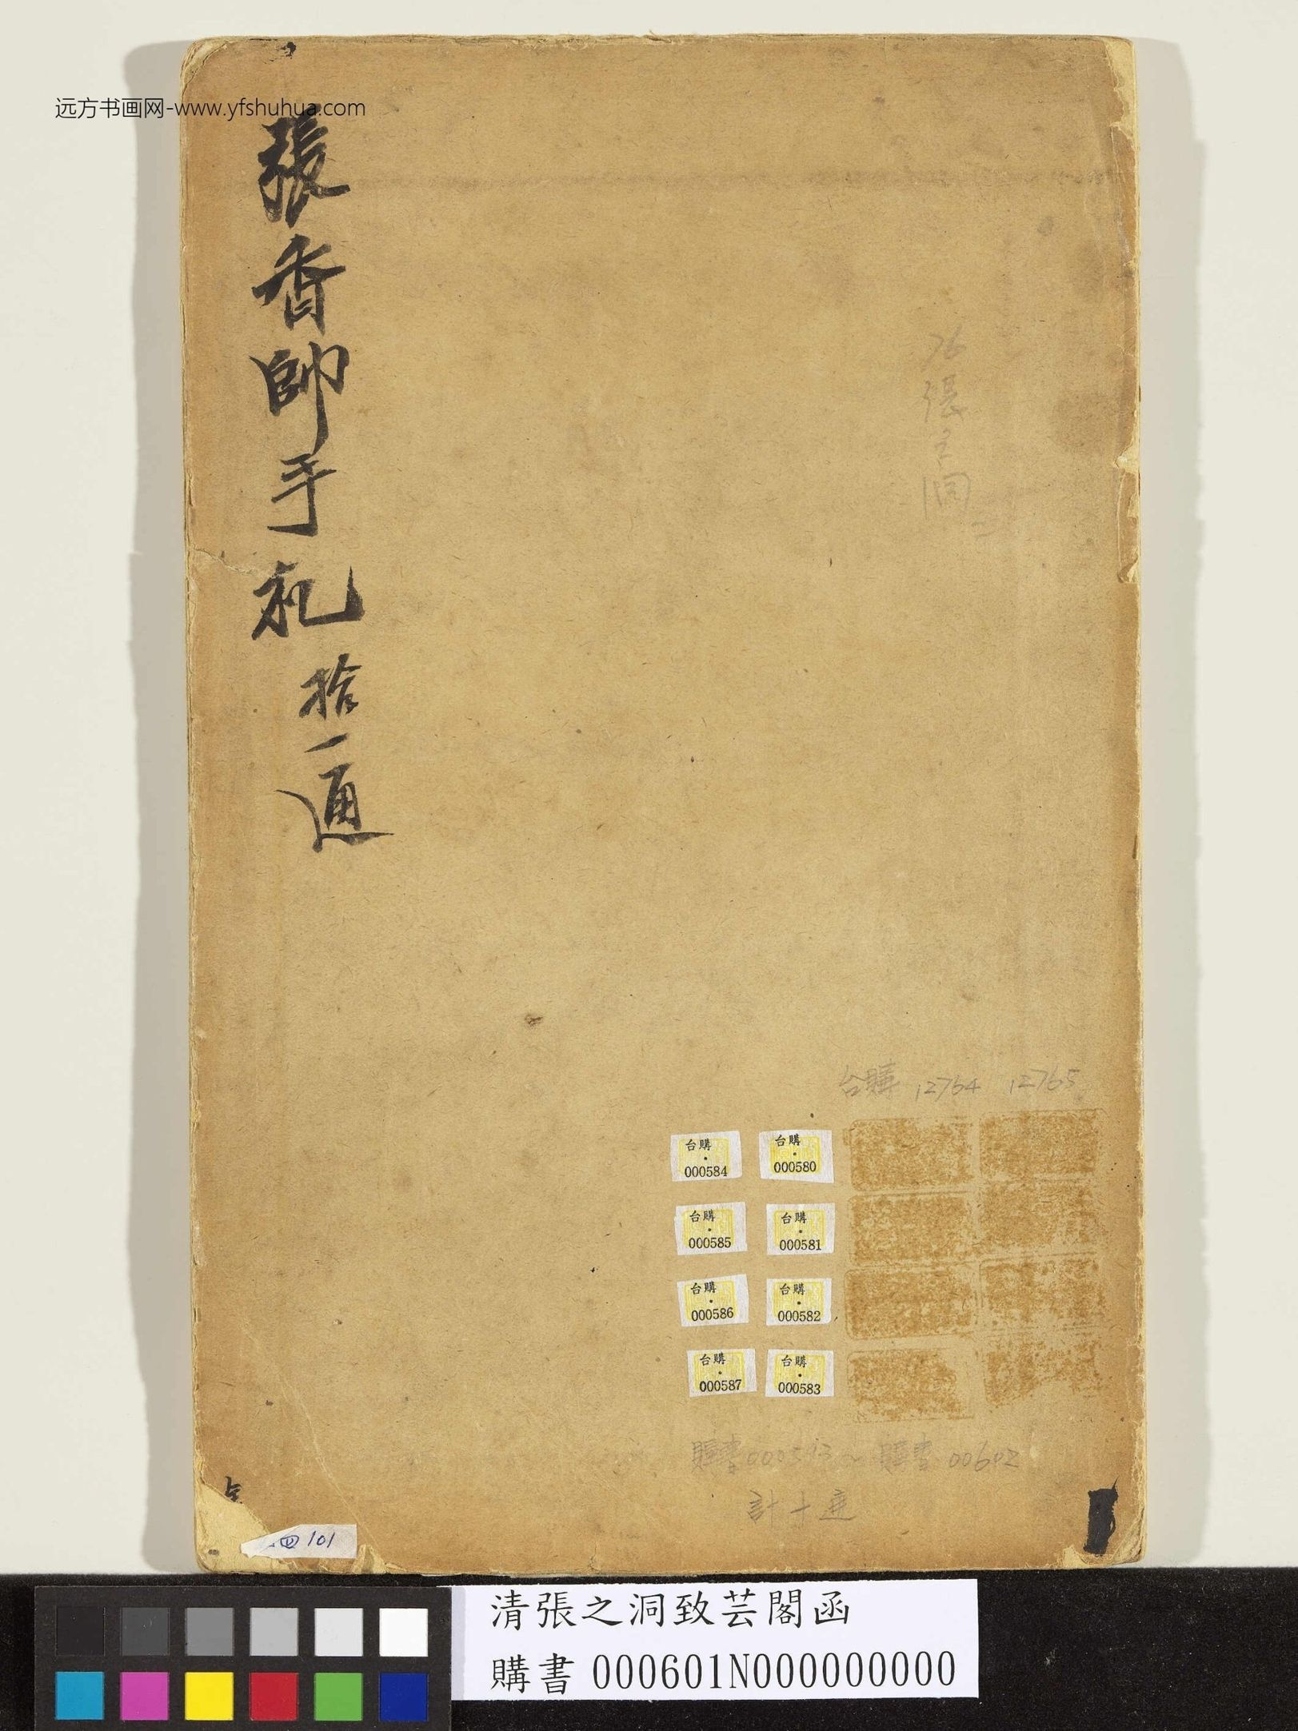 远方书画网-www.yfshuhua.com
張香帥手札拾一通
76張之洞二
台購 12764 12765
台購・000584
台購・000580
台購・000585
台購・000581
台購・000586
台購・000582
台購・000587
台購・000583
購書000593~購書00602
計十通
四101
清張之洞致芸閣函
購書 000601N000000000